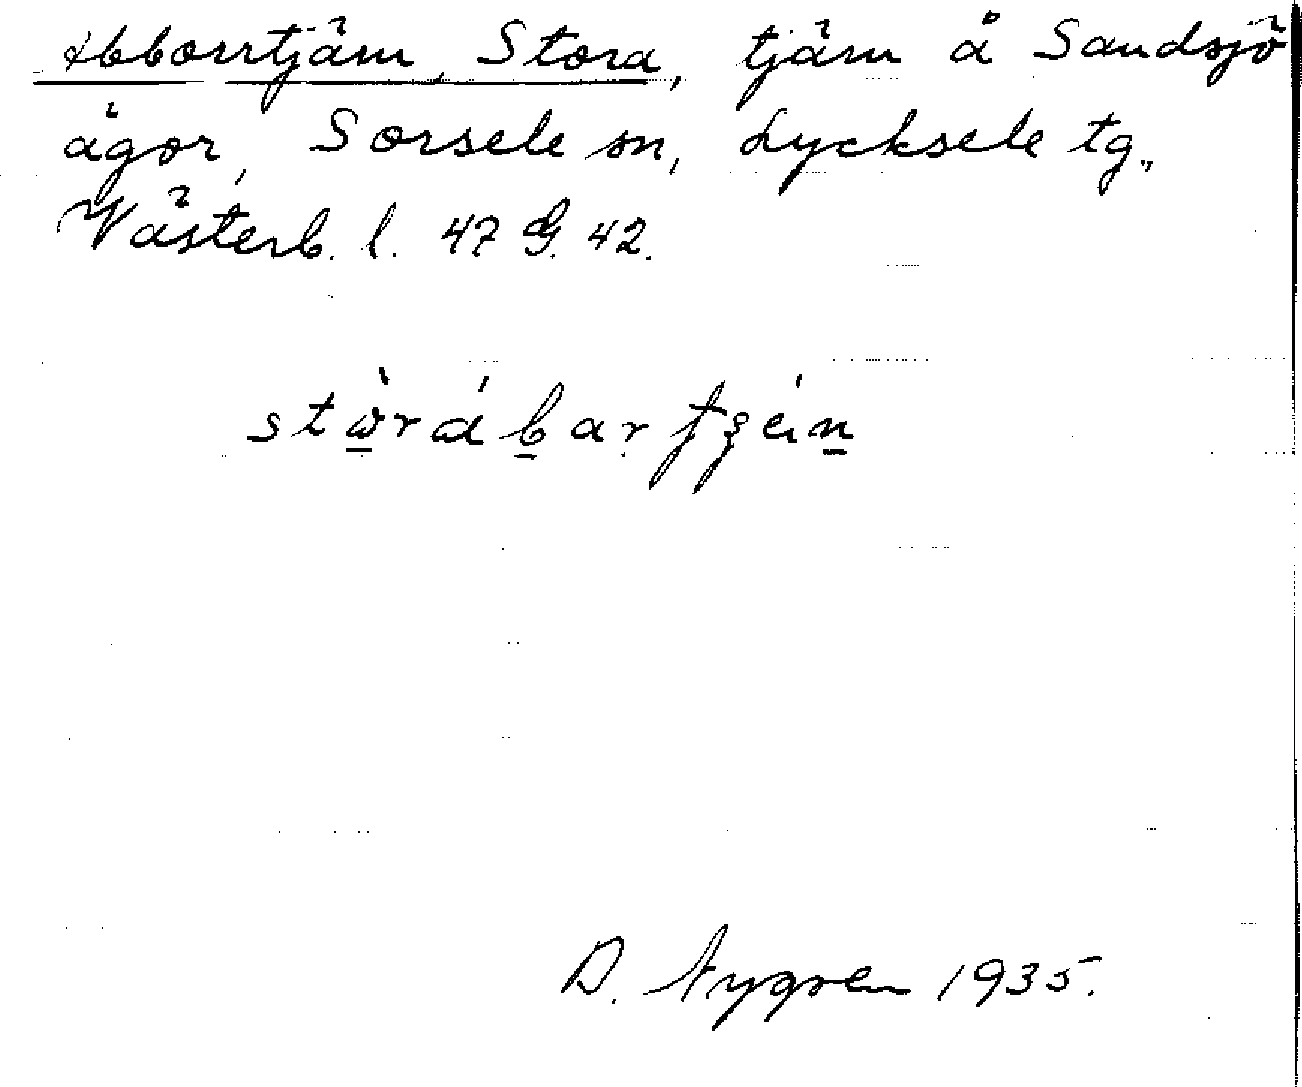 Abborrtjärn, Stora, tjärn å Sandsjö
ägor, Sorsele sn, Lycksele tg.,
Västerb. l. 47 G. 42.
D. Nygren 1935.